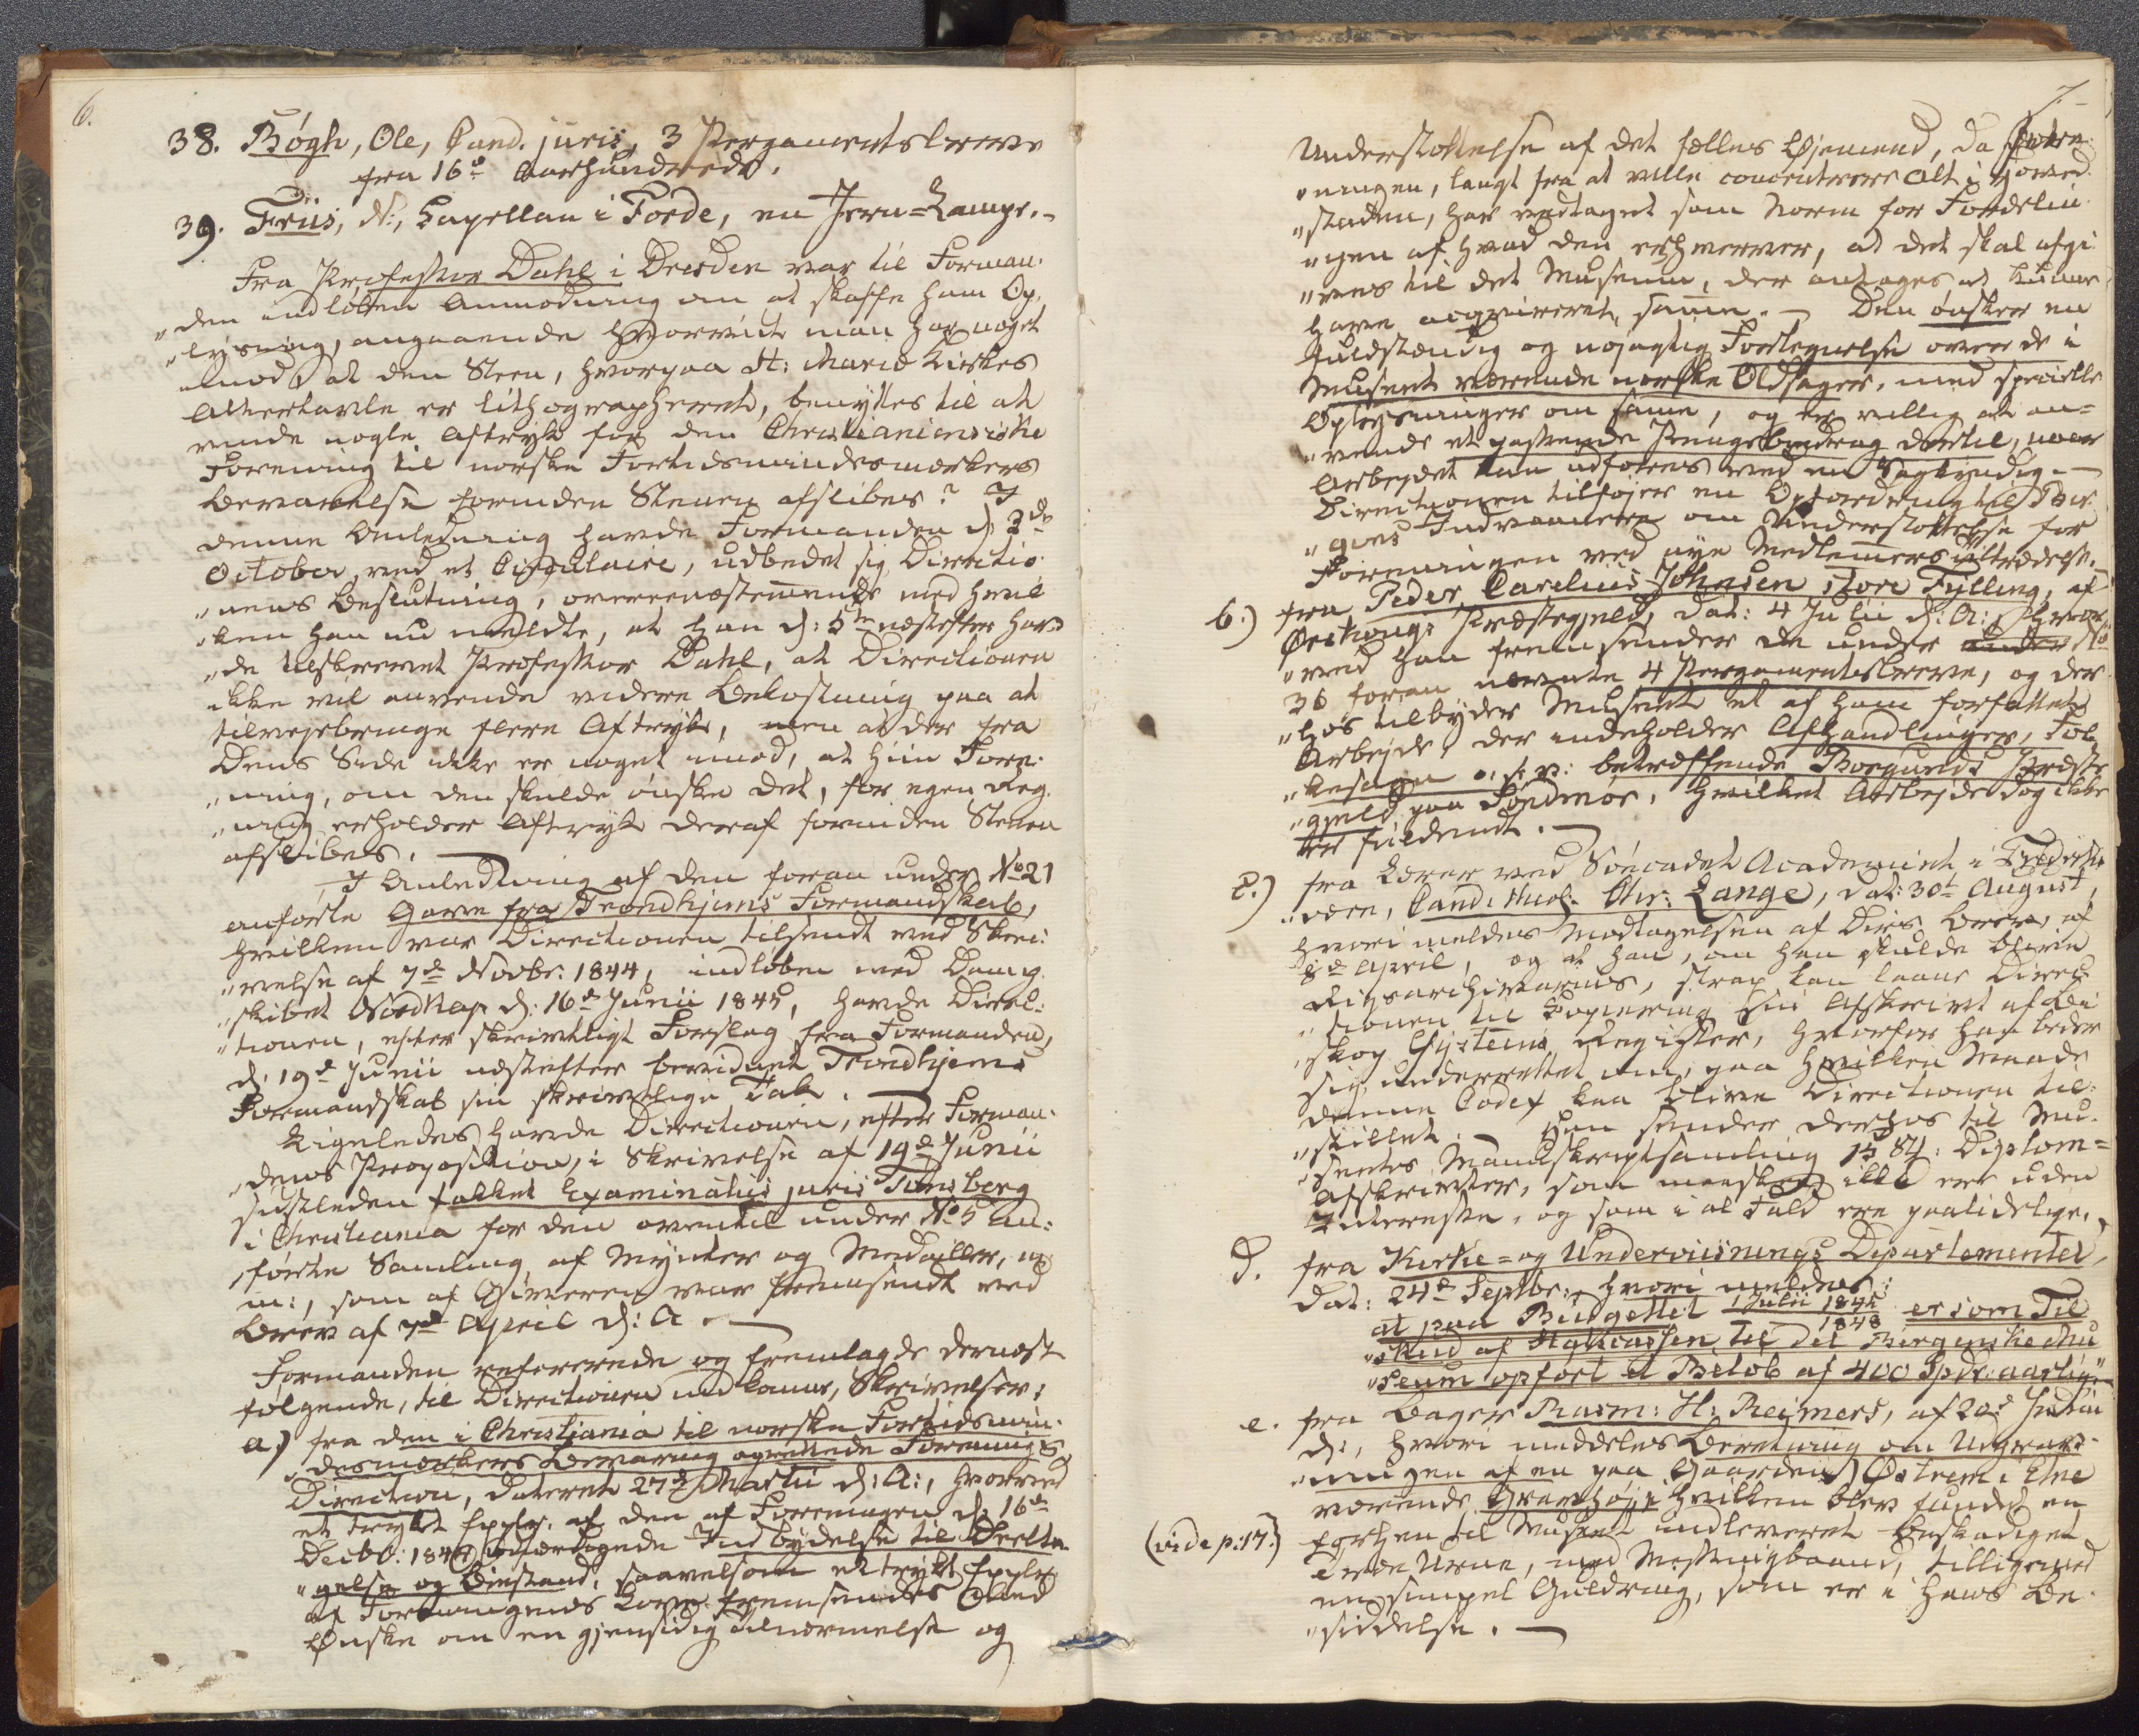 6.
38. Bøgh, Ole, Cand. juris, 3 Pergamentsbreve
fra 16de Aarhundrede.
39. Friis, N:, Capellan i Förde, en Jern-Lampe.
Fra Professor Dahl i Dresden var til Forman-
„den indløben Anmodning om at skaffe ham Op-
„lysning, angaaende hvorvidt man har noget
imod at den Steen, hvorpaa St: Mariæ Kirkes
Altertavle er lithographeret, benyttes til at
vinde nogle Aftryk for den Christianiensiske
Forening til norske Fortidsmindesmærkers
Bevarelse forinden Stenen afslibes? I
denne Anledning havde Formanden d: 2de
October, ved et Circulaire, udbedet sig Directio-
„nens Beslutning, overeensstemmende med hvil-
„ken han nu meldte, at han d: 5te næstefter hav-
„de tilskrevet Professor Dahl, at Directionen
ikke vil anvende videre Bekostning paa at
tilvejebringe flere Aftryk, men at der fra
Dens Side ikke er noget imod, at hiin Fore-
„ning, om den skulde ønske det, for egen Reg-
„ning erholder Aftryk deraf forinden Stenen
afslibes.
I Anledning af den foran under No 21
anførte Gave fra Trondhjems Formandskab,
hvilken var Directionen tilsendt ved Skri-
„velse af 7de Novbr: 1844, indløben med Damp-
„skibet Nordkap d: 16de Junii 1845, havde Direc-
„tionen, efter skriftligt Forslag fra Formanden,
d: 19de Junii næstefter bevidnet Trondhjems
Formandskab sin skriftlige Tak.
Ligeledes havde Directionen, efter Forman-
„dens Proposition, i Skrivelse af 19de Junii
sidstleden takket Examinatus juris Tönsberg
i Christiania for den ovenfor under No 5 an-
„førte Samling af Mynter og Medailler, m:
m:, som af Giveren var fremsendt med
Brev af 7de April d: A.
Formanden refererede og fremlagde dernæst
følgende, til Directionen indkomne, Skrivelser:
a) fra den i Christiania til norske Fortidsmin-
„desmærkers Bevaring oprettede Forenings
Direction, dateret 27de Martii d: A:, hvorved
et trykt Explr. af den af Foreningen d: 16de
Decbr: 1844 udfærdigede Indbydelse til Deelta-
„gelse og Biestand, saavelsom et trykt Explr.
af Foreningens Love fremsendes med
Ønske om en gjensidig Tilnærmelse og
7.
Understøttelse af det fælles Øjemed, da Fore-
„ningen, langt fra at ville concentrere Alt i Hoved-
„staden, har vedtaget som Norm for Fordelin-
„gen af hvad den erhverver, at det skal afgi-
„ves til det Museum, der antages at kunne
have acqvireret samme. – Den ønsker en
fuldstændig og nøjagtig Fortegnelse over de i
Museet værende norske Oldsager, med specielle
Oplysninger om samme, og er villig at an-
„vende et passende Pengebidrag dertil, naar
Arbejdet kan udføres ved en Sagkyndig. –
Directionen tilføjer en Opfordring til Ber-
„gens Indvaanere om Understøttelse for
Foreningen ved nye Medlemmers Tiltrædelse.
b.) fra Peder Carelius Johnsen store Fylling, af
Ørskougs Præstegjeld, dat: 4 Julii d: A:, hvor-
„ved han fremsender de under No
36 foran nævnte 4 Pergamentsbreve, og der-
„hos tilbyder Museet et af ham forfattet
Arbejde, der indeholder Afhandlinger, Fol-
„kesagn o: s: v: betræffende Borgunds Præste-
„gjeld paa Söndmør, hvilket Arbejde dog ikke
er fuldendt.
c.) fra Lærer ved Söecadet Academiet i Frederiks-
„værn, Cand: theol. Chr: Lange, dat: 30te August,
hvori meldes Modtagelsen af Dirs Brev, af
8de April, og at han, om han skulde blive
Rigsarchivarius, strax kan laane Direc-
„tionen til Copiering sin Afskrivt af Bi-
„skop Eysteins Register, hvorfor han beder
sig underrettet om, paa hvilken Maade
denne Codex kan blive Directionen til-
„stillet. – Han sender derhos til Mu-
„seets Manuskriptsamling 15 St: Diplom-
Afskrivter, som maaskee ikke ere uden
Interesse, og som i al Fald ere paalidelige.
d. fra Kirke- og Underviisnings Departementet,
dat: 24de Septbr:, hvori meldes:
at paa Budgettet 1 Julii 1845/1848 er som Til-
„skud af Statscassen til det Bergenske Mu-
„seum opfört et Belöb af 400 Spdr. aarligen
e. fra Bager Rasm: H: Reimers, af 20de Junii
d:, hvori meddeles Beretning om Udgrav-
„ningen af en paa Gaarden Østrem i Etne
værende Gravhøj, i hvilken blev fundet en
(vide p: 17.) forhen til Museet indleveret beskadiget
Urne, med Messingbaand, tilligemed
en simpel Guldring, som er i hans Be-
„siddelse.